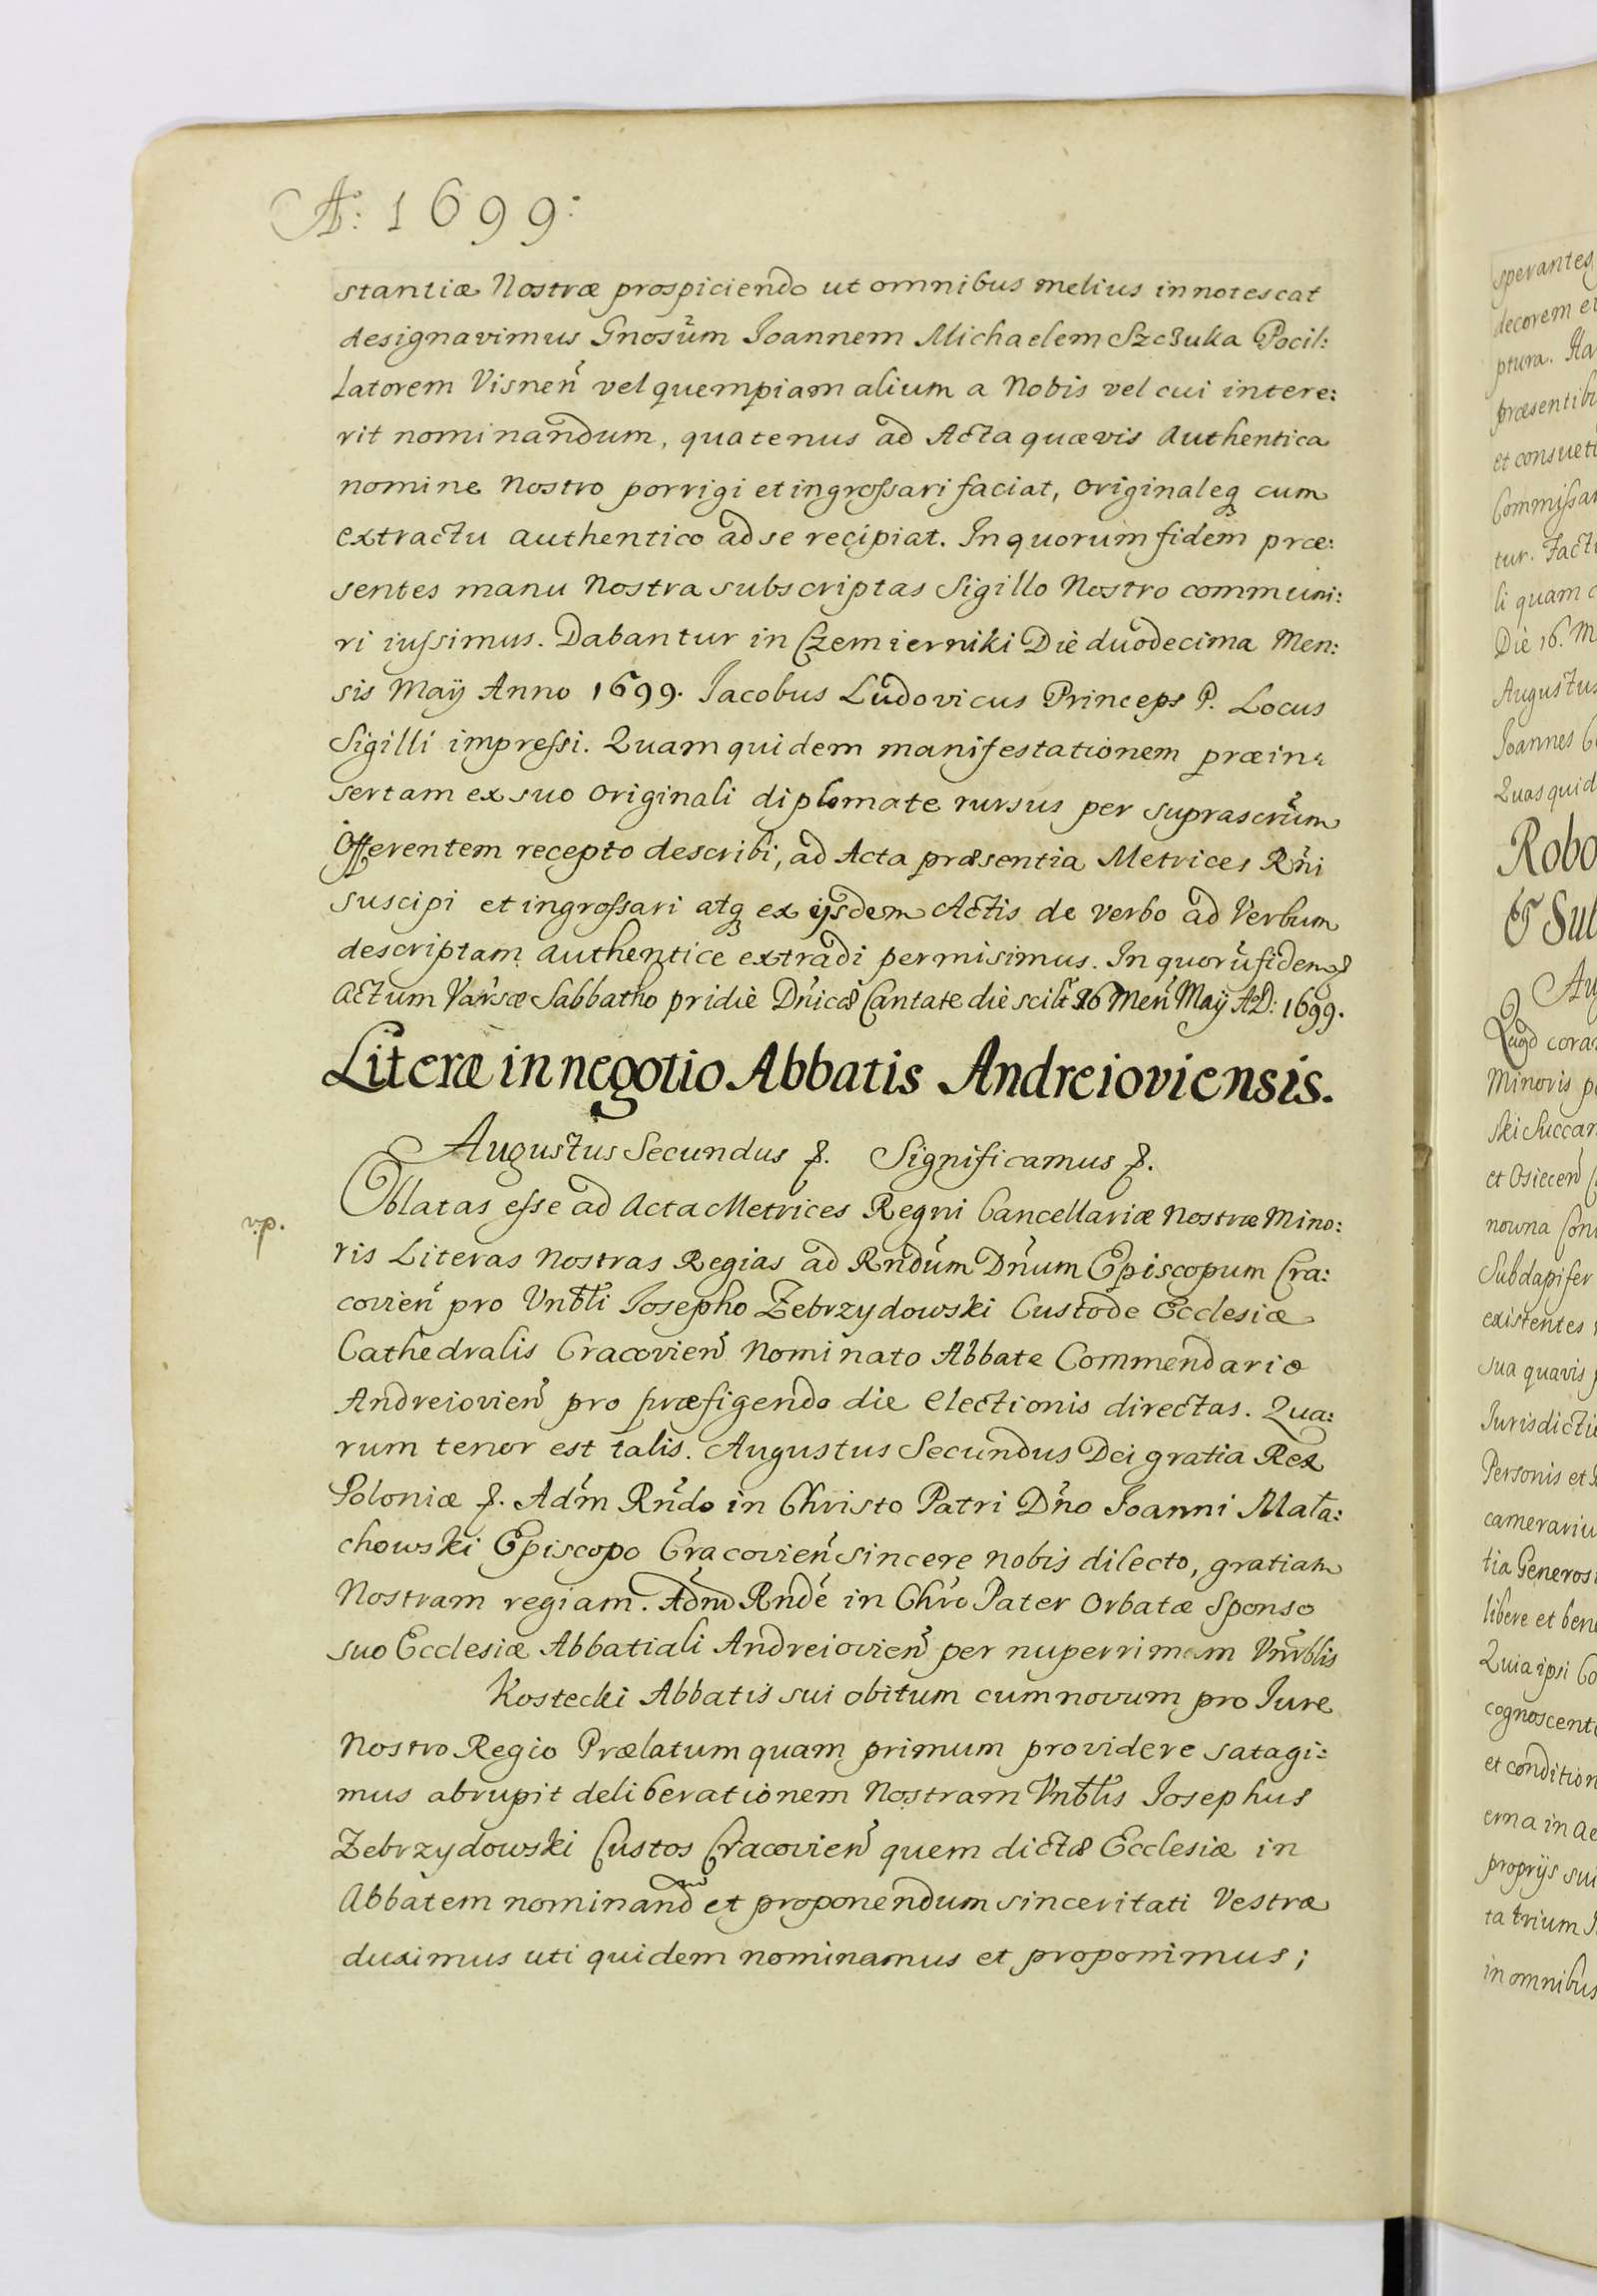 Aō: 1699:
stantiæ Nostræ prospiciendo ut omnibus melius innotescat
designavimus Gnosũm Joannem Michaelem Szczuka Pocil:
latorem Visneñ vel quempiam alium a Nobis vel cui intere:
rit nominandum, quatenus ad Acta quævis Authentica
nomine Nostro porrigi et ingroſsari faciat, originaleq cum
extractu authentico ad se recipiat. In quorum fidem præ:
sentes manu Nostra subscriptas Sigillo Nostro communi:
ri iuſsimus. Dabantur in Czemierniki Diè duodecima Men:
sis Maÿ Anno 1699. Jacobus Ludovicus Princeps P. Locus
Sigilli impreſsi. Quam quidem manifestationem præin:
sertam ex suo originali diplomate rursus per suprascrũm
Offerentem recepto describi, ad Acta præsentia Metrices Rñi
suscipi et ingroſsari atq ex ijsdem Actis de verbo ad Verbum
descriptam authentice extradi permisimus. In quorũ fidem &
Actum Varsæ Sabbatho pridiè Dñicæ Cantate diè scilt 16 Meñ Maÿ A.D: 1699.
Literæ in negotio Abbatis Andreioviensis.
Augustus Secundus &. Significamus &.
v.p.
Oblatas eſse ad Acta Metrices Regni Cancellariæ Nostræ Mino:
ris Literas Nostras Regias ad Rndũm Dñum Episcopum Cra:
covieñ pro Vnbłi Josepho Zebrzydowski Custode Ecclesiæ
Cathedralis Cracovieñ Nominato Abbate Commendario
Andreiovieñ pro præfigendo die electionis directas. Qua:
rum tenor est talis. Augustus Secundus Dei gratia Rex
Poloniæ &. Adm̃ Rñdo in Christo Patri Dño Joanni Mała:
chowski Episcopo Cracovieñ sincere nobis dilecto, gratiam
Nostram regiam. Adm̃ Rndẽ in Chrõ Pater Orbatæ Sponso
suo Ecclesiæ Abbatiali Andreiovieñ per nuperrimam Vnrblis
Kostecki Abbatis sui obitum cum novum pro Jure
Nostro Regio Prælatum quam primum providere satagi:
mus abrupit deliberationem Nostram Vnbłis Josephus
Zebrzydowski Custos Cracovieñ quem dictæ Ecclesiæ in
Abbatem nominand et proponendum sinceritati Vestræ
duximus uti quidem nominamus et proponimus;
sperantes
decorem et
ptura.
præsentibu
et consueti
Commiſsar
tur. Factu
li quam
Diè 16. M
Augustus
Joannes
Quas quid
Robo
Sub
Au
Quod cora
Minoris p
ski Succam
et Osiecen
nowna Con
Subdapifer
existentes
sua quavis
Jurisdictio
Personis et
camerariu
tia Generosi
libere et bene
Quia ipsi
cognoscent
et condition
erna in
proprÿs sui
ta trium
in omnibus